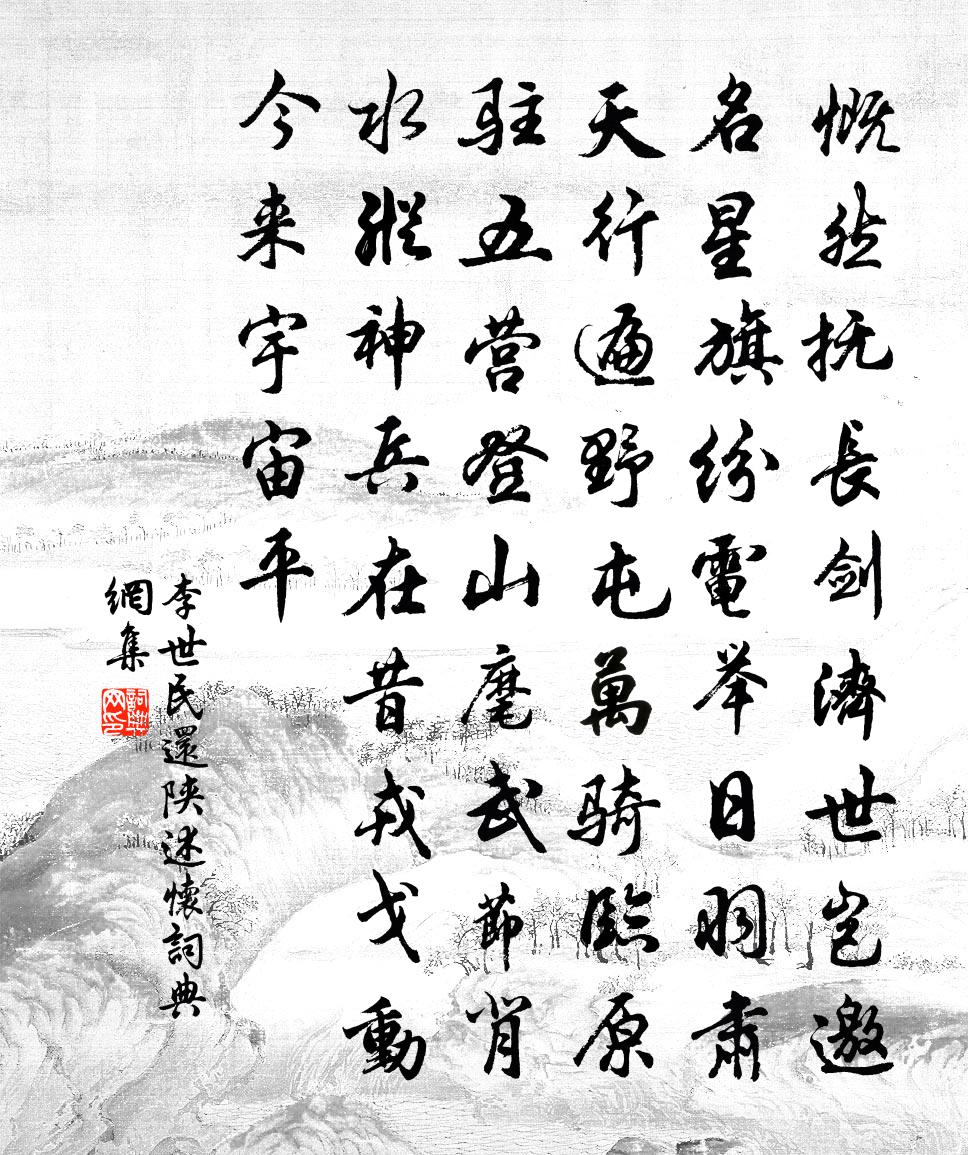 慨然抚長剑濟世岂邀
名星旗纷電举日羽肃
天行遍野屯萬骑臨原
驻五营登山麾武節肖
水縱神兵在昔戎戈動
今来宇宙平
李世民還陕述懷詞典
網集
詞典
网印